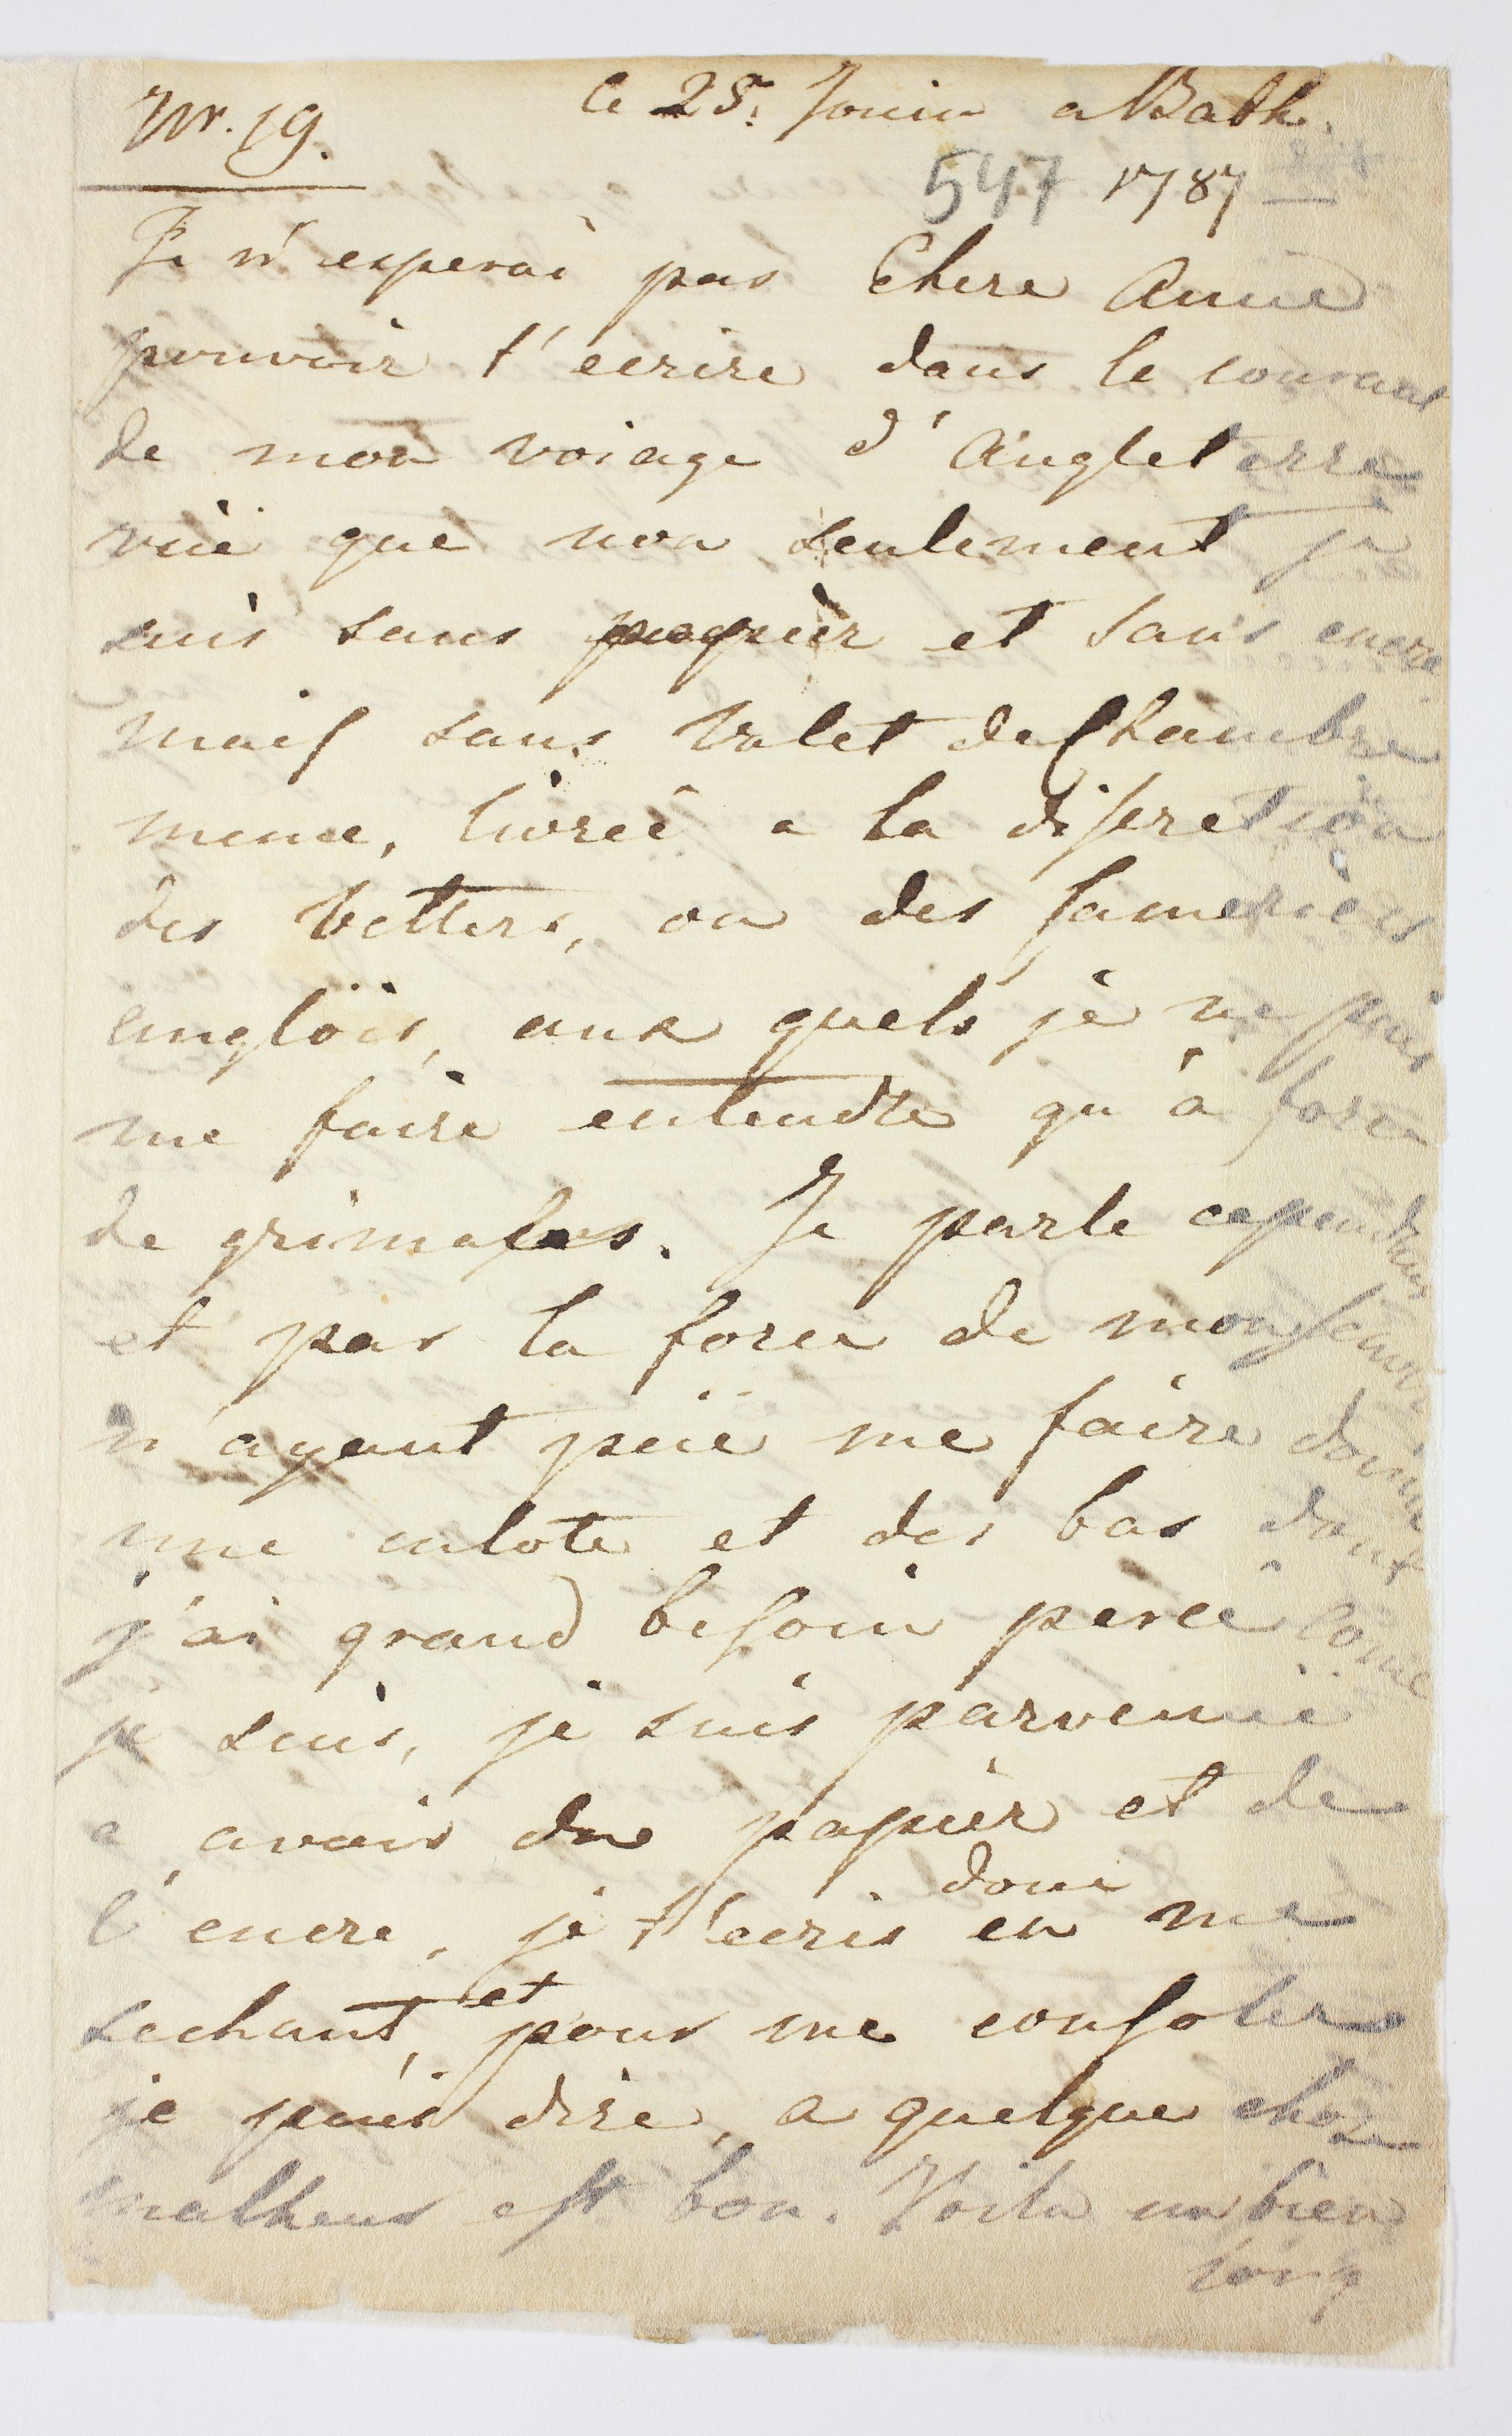 Nr. 19.
le 25. Jouin a Bath.
547 1787
Je n'esperai pas Chere Amie
pouvoir t'ecrire dans le courant
de mon voiage d'Angleterre
vüe que non seulement je
suis sans papier et sans encre
mais sans Valet de Chambre
meme, livreé a la discretion
des vetters, ou des sameriers
anglois, aux quels je ne puis
me faire entendre qu'à force
de grimases. Je parle cependant
et par la force de mon scavoir
n'ayant püe me faire donner
une culote et des bas dont
j'ai grand besoin percé come
je suis, je suis parvenüe
a avoir du papier et de
l'encre, je t'ecris donc en me
sechant, et pour me consoler
je puis dire, a quelque chose
malheur est bon. Voila un bien
long